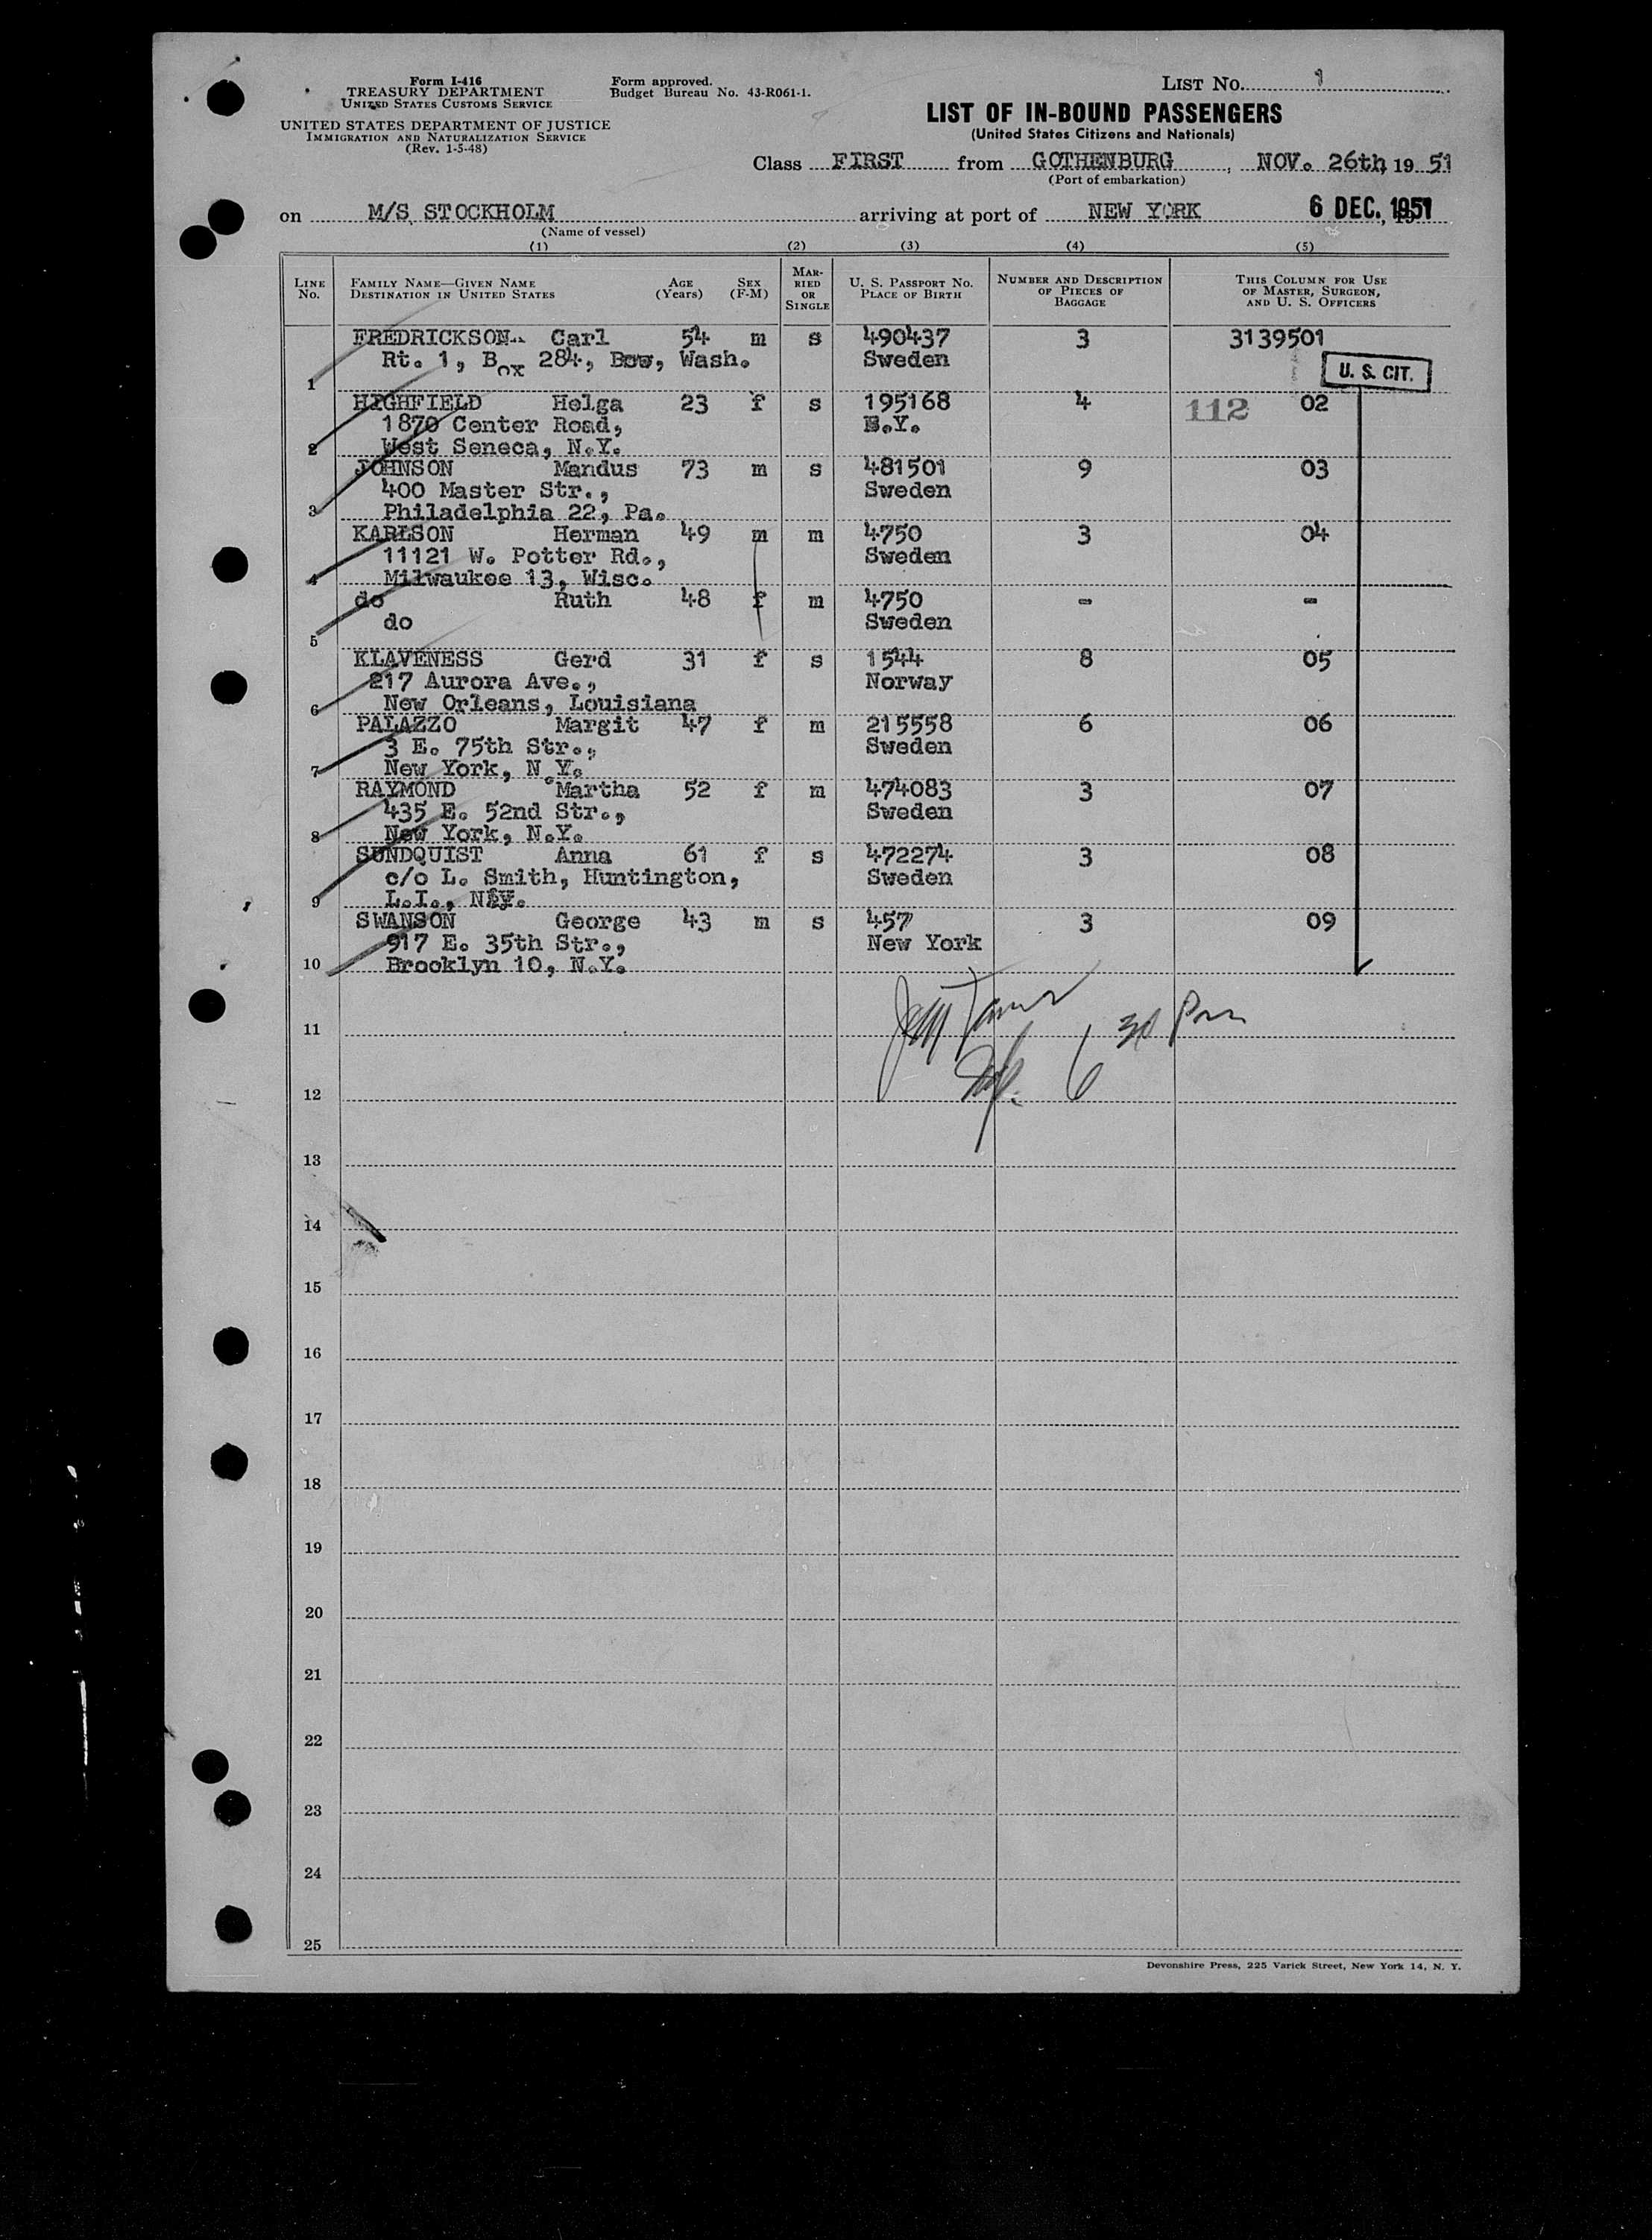 Form I-416
TREASURY DEPARTMENT
UNITED STATES CUSTOMS SERVICE
UNITED STATES DEPARTMENT OF JUSTICE
IMMIGRATION AND NATURALIZATION SERVICE
(Rev. 1-5-48)
Form approved.
Budget Bureau No. 43-R061-1.
LIST No. 1
LIST OF IN-BOUND PASSENGERS
(United States Citizens and Nationals)
Class FIRST from GOTHENBURG, NOV. 26th, 19 51
(Port of embarkation)
on M/S STOCKHOLM arriving at port of NEW YORK 6 DEC., 1951
(Name of vessel)
(1) (2) (3) (4) (5)
LINE No. FAMILY NAME—GIVEN NAME DESTINATION IN UNITED STATES AGE (Years) SEX (F-M) MARRIED OR SINGLE U. S. PASSPORT No. PLACE OF BIRTH NUMBER AND DESCRIPTION OF PIECES OF BAGGAGE THIS COLUMN FOR USE OF MASTER, SURGEON, AND U. S. OFFICERS
FREDRICKSON Carl 54 m s 490437 3 3139501
Rt. 1, Box 284, Bow, Wash. Sweden U. S. CIT.
1
HIGHFIELD Helga 23 f s 195168 4 112 02
1870 Center Road, N.Y.
2 West Seneca, N.Y.
JOHNSON Mandus 73 m s 481501 9 03
400 Master Str., Sweden
3 Philadelphia 22, Pa.
KARLSON Herman 49 m m 4750 3 04
11121 W. Potter Rd., Sweden
4 Milwaukee 13, Wisc.
do Ruth 48 f m 4750 - -
do Sweden
5
KLAVENESS Gerd 31 f s 1544 8 05
217 Aurora Ave., Norway
6 New Orleans, Louisiana
PALAZZO Margit 47 f m 215558 6 06
3 E. 75th Str., Sweden
7 New York, N.Y.
RAYMOND Martha 52 f m 474083 3 07
435 E. 52nd Str., Sweden
8 New York, N.Y.
SUNDQUIST Anna 61 f s 472274 3 08
c/o L. Smith, Huntington, Sweden
9 L.I., N.Y.
SWANSON George 43 m s 457 3 09
917 E. 35th Str., New York
10 Brooklyn 10, N.Y.
6 30 Pm
11
12
13
14
15
16
17
18
19
20
21
22
23
24
25
Devonshire Press, 225 Varick Street, New York 14, N. Y.